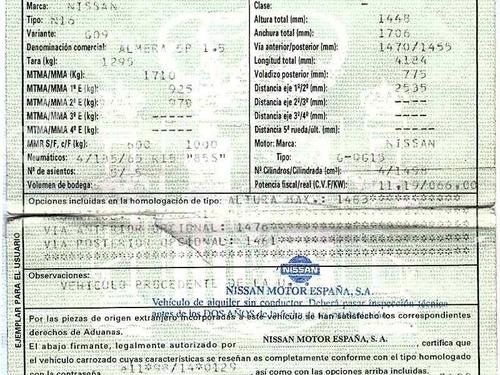 Marca: NISSAN
Tipo: N16
Variante: G09
Denominación comercial: ALMERA 5P 1.5
Tara (kg): 1295
MTMA/MMA (Kg): 1710
MTMA/MMA 1º E (kg): 925
MTMA/MMA 2º E (kg): 870
MTMA/MMA 3º E (kg): -----
MTMA/MMA 4º E (kg): -----
MMR S/F, c/F (kg): 600 1000
Neumáticos: 4/185/65 R15 "88S"
Nº de asientos: 5/-5
Volumen de bodega:
Clase: -
Altura total (mm): 1448
Anchura total (mm): 1706
Vía anterior/posterior (mm): 1470/1455
Longitud total (mm): 4184
Voladizo posterior (mm): 775
Distancia eje 1º/2º (mm): 2535
Distancia eje 2º/3º (mm): -----
Distancia eje 3º/4º (mm): -----
Distancia 5ª rueda/últ. (mm): -----
Motor: Marca: NISSAN
Tipo: G-QG15
Nº Cilindros/Cilindrada (cm³): 4/1498
Potencia fiscal/real (C.V.F/KW): 11.19/066.00
Opciones incluidas en la homologación de tipo: ALTURA MAX.: 1463
VIA ANTERIOR OPCIONAL: 1476
VIA POSTERIOR OPCIONAL: 1461
EJEMPLAR PARA EL USUARIO
Observaciones:
VEHICULO PROCEDENTE DE
NISSAN
NISSAN MOTOR ESPAÑA, S.A.
Vehículo de alquiler sin conductor. Deberá pasar inspección técnica
antes de los DOS AÑOS de la
Por las piezas de origen extranjero incorporadas a este vehículo se han satisfecho los correspondientes
derechos de Aduanas.
El abajo firmante, legalmente autorizado por NISSAN MOTOR ESPAÑA, S. A. , certifica que
el vehículo carrozado cuyas características se reseñan es completamente conforme con el tipo homologado
con la contraseña e11*98/14*0129 , así como con las opciones arriba incluidas.